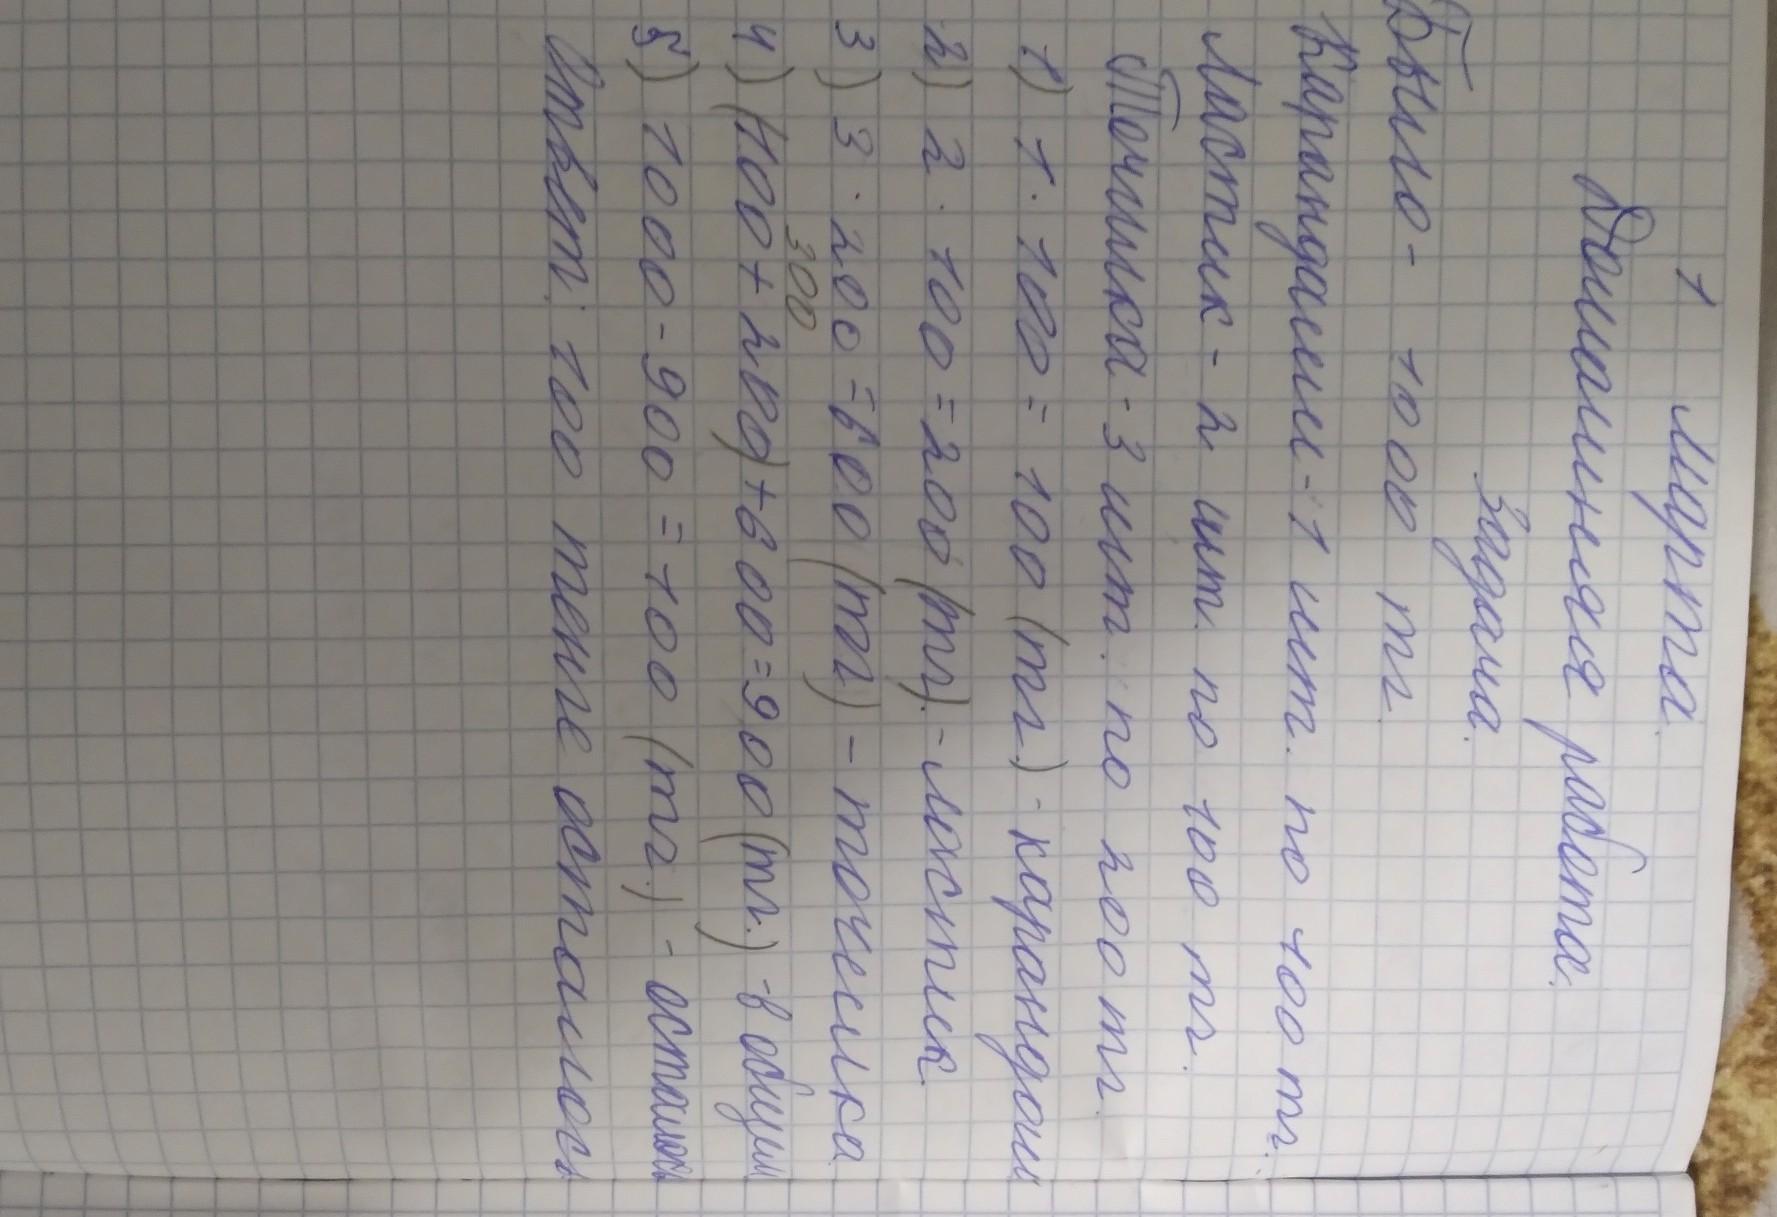 1 марта.
Домашняя работа.
Задача.
Было - 1000 тг.
Карандаш - 1 шт. по 100 тг.
Ластик - 2 шт. по 100 тг.
Точилка - 3 шт. по 200 тг.
1) 1 · 100 = 100 (тг.) - карандаш
2) 2 · 100 = 200 (тг). - ластик
3) 3 · 200 = 600 (тг) - точилка
300
4) (100 + 200) + 600 = 900 (тг.) - в общем
5) 1000 - 900 = 100 (тг.) - осталось
Ответ: 100 тенге осталось